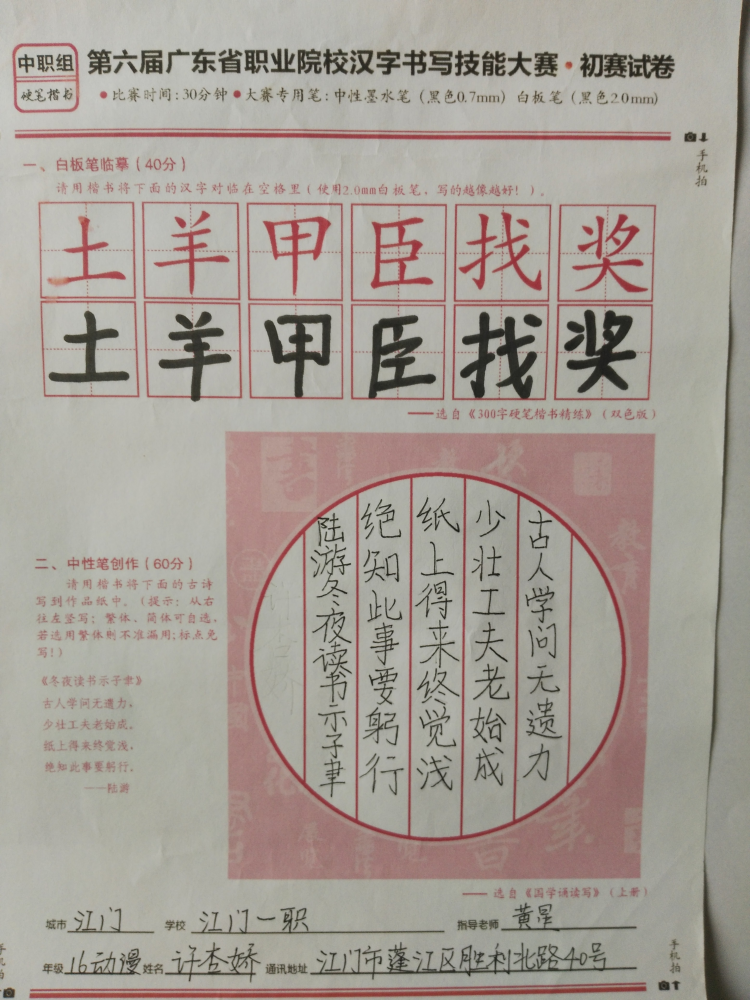 中职组
硬笔楷书
第六届广东省职业院校汉字书写技能大赛·初赛试卷
●比赛时间:30分钟●大赛专用笔:中性墨水笔(黑色0.7mm) 白板笔(黑色2.0mm)
手机拍
一、白板笔临摹(40分)
请用楷书将下面的汉字对临在空格里(使用2.0mm白板笔,写的越像越好!)。
土羊甲臣找奖
土羊甲臣找奖
——选自《300字硬笔楷书精练》(双色版)
二、中性笔创作(60分)
请用楷书将下面的古诗
写到作品纸中。(提示:从右
往左竖写;繁体、简体可自选,
若选用繁体则不准漏用;标点免
写!)
《冬夜读书示子聿》
古人学问无遗力,
少壮工夫老始成。
纸上得来终觉浅,
绝知此事要躬行。
——陆游
古人学问无遗力
少壮工夫老始成
纸上得来终觉浅
绝知此事要躬行
陆游冬夜读书示子聿
——选自《国学诵读写》(上册)
城市 江门 学校 江门一职 指导老师 黄星
年级 16动漫 姓名 许杏娇 通讯地址 江门市蓬江区胜利北路40号
手机拍
手机拍